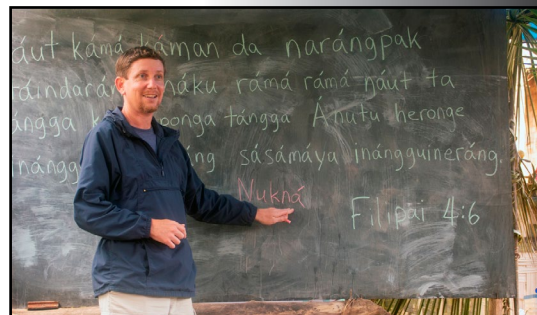 áut kámá káman da narángpak
áindará náku rámá rámá náut ta
ángga k ponga tángga Ánutu heronge
nángg ng sásámáya inángguineráng.
Nukná
Filipai 4:6